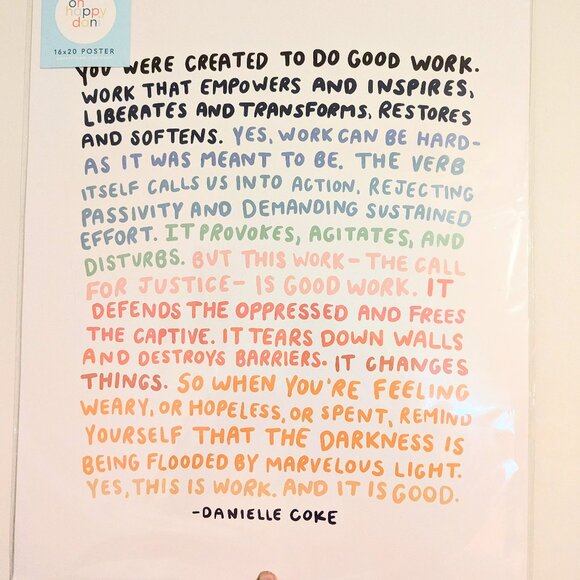 oh
happy
dani
16x20 POSTER
YOU WERE CREATED TO DO GOOD WORK.
WORK THAT EMPOWERS AND INSPIRES,
LIBERATES AND TRANSFORMS, RESTORES
AND SOFTENS. YES, WORK CAN BE HARD-
AS IT WAS MEANT TO BE. THE VERB
ITSELF CALLS US INTO ACTION, REJECTING
PASSIVITY AND DEMANDING SUSTAINED
EFFORT. IT PROVOKES, AGITATES, AND
DISTURBS. BUT THIS WORK-THE CALL
FOR JUSTICE- IS GOOD WORK. IT
DEFENDS THE OPPRESSED AND FREES
THE CAPTIVE. IT TEARS DOWN WALLS
AND DESTROYS BARRIERS. IT CHANGES
THINGS. SO WHEN YOU'RE FEELING
WEARY, OR HOPELESS, OR SPENT, REMIND
YOURSELF THAT THE DARKNESS IS
BEING FLOODED BY MARVELOUS LIGHT.
YES, THIS IS WORK. AND IT IS GOOD.
-DANIELLE COKE